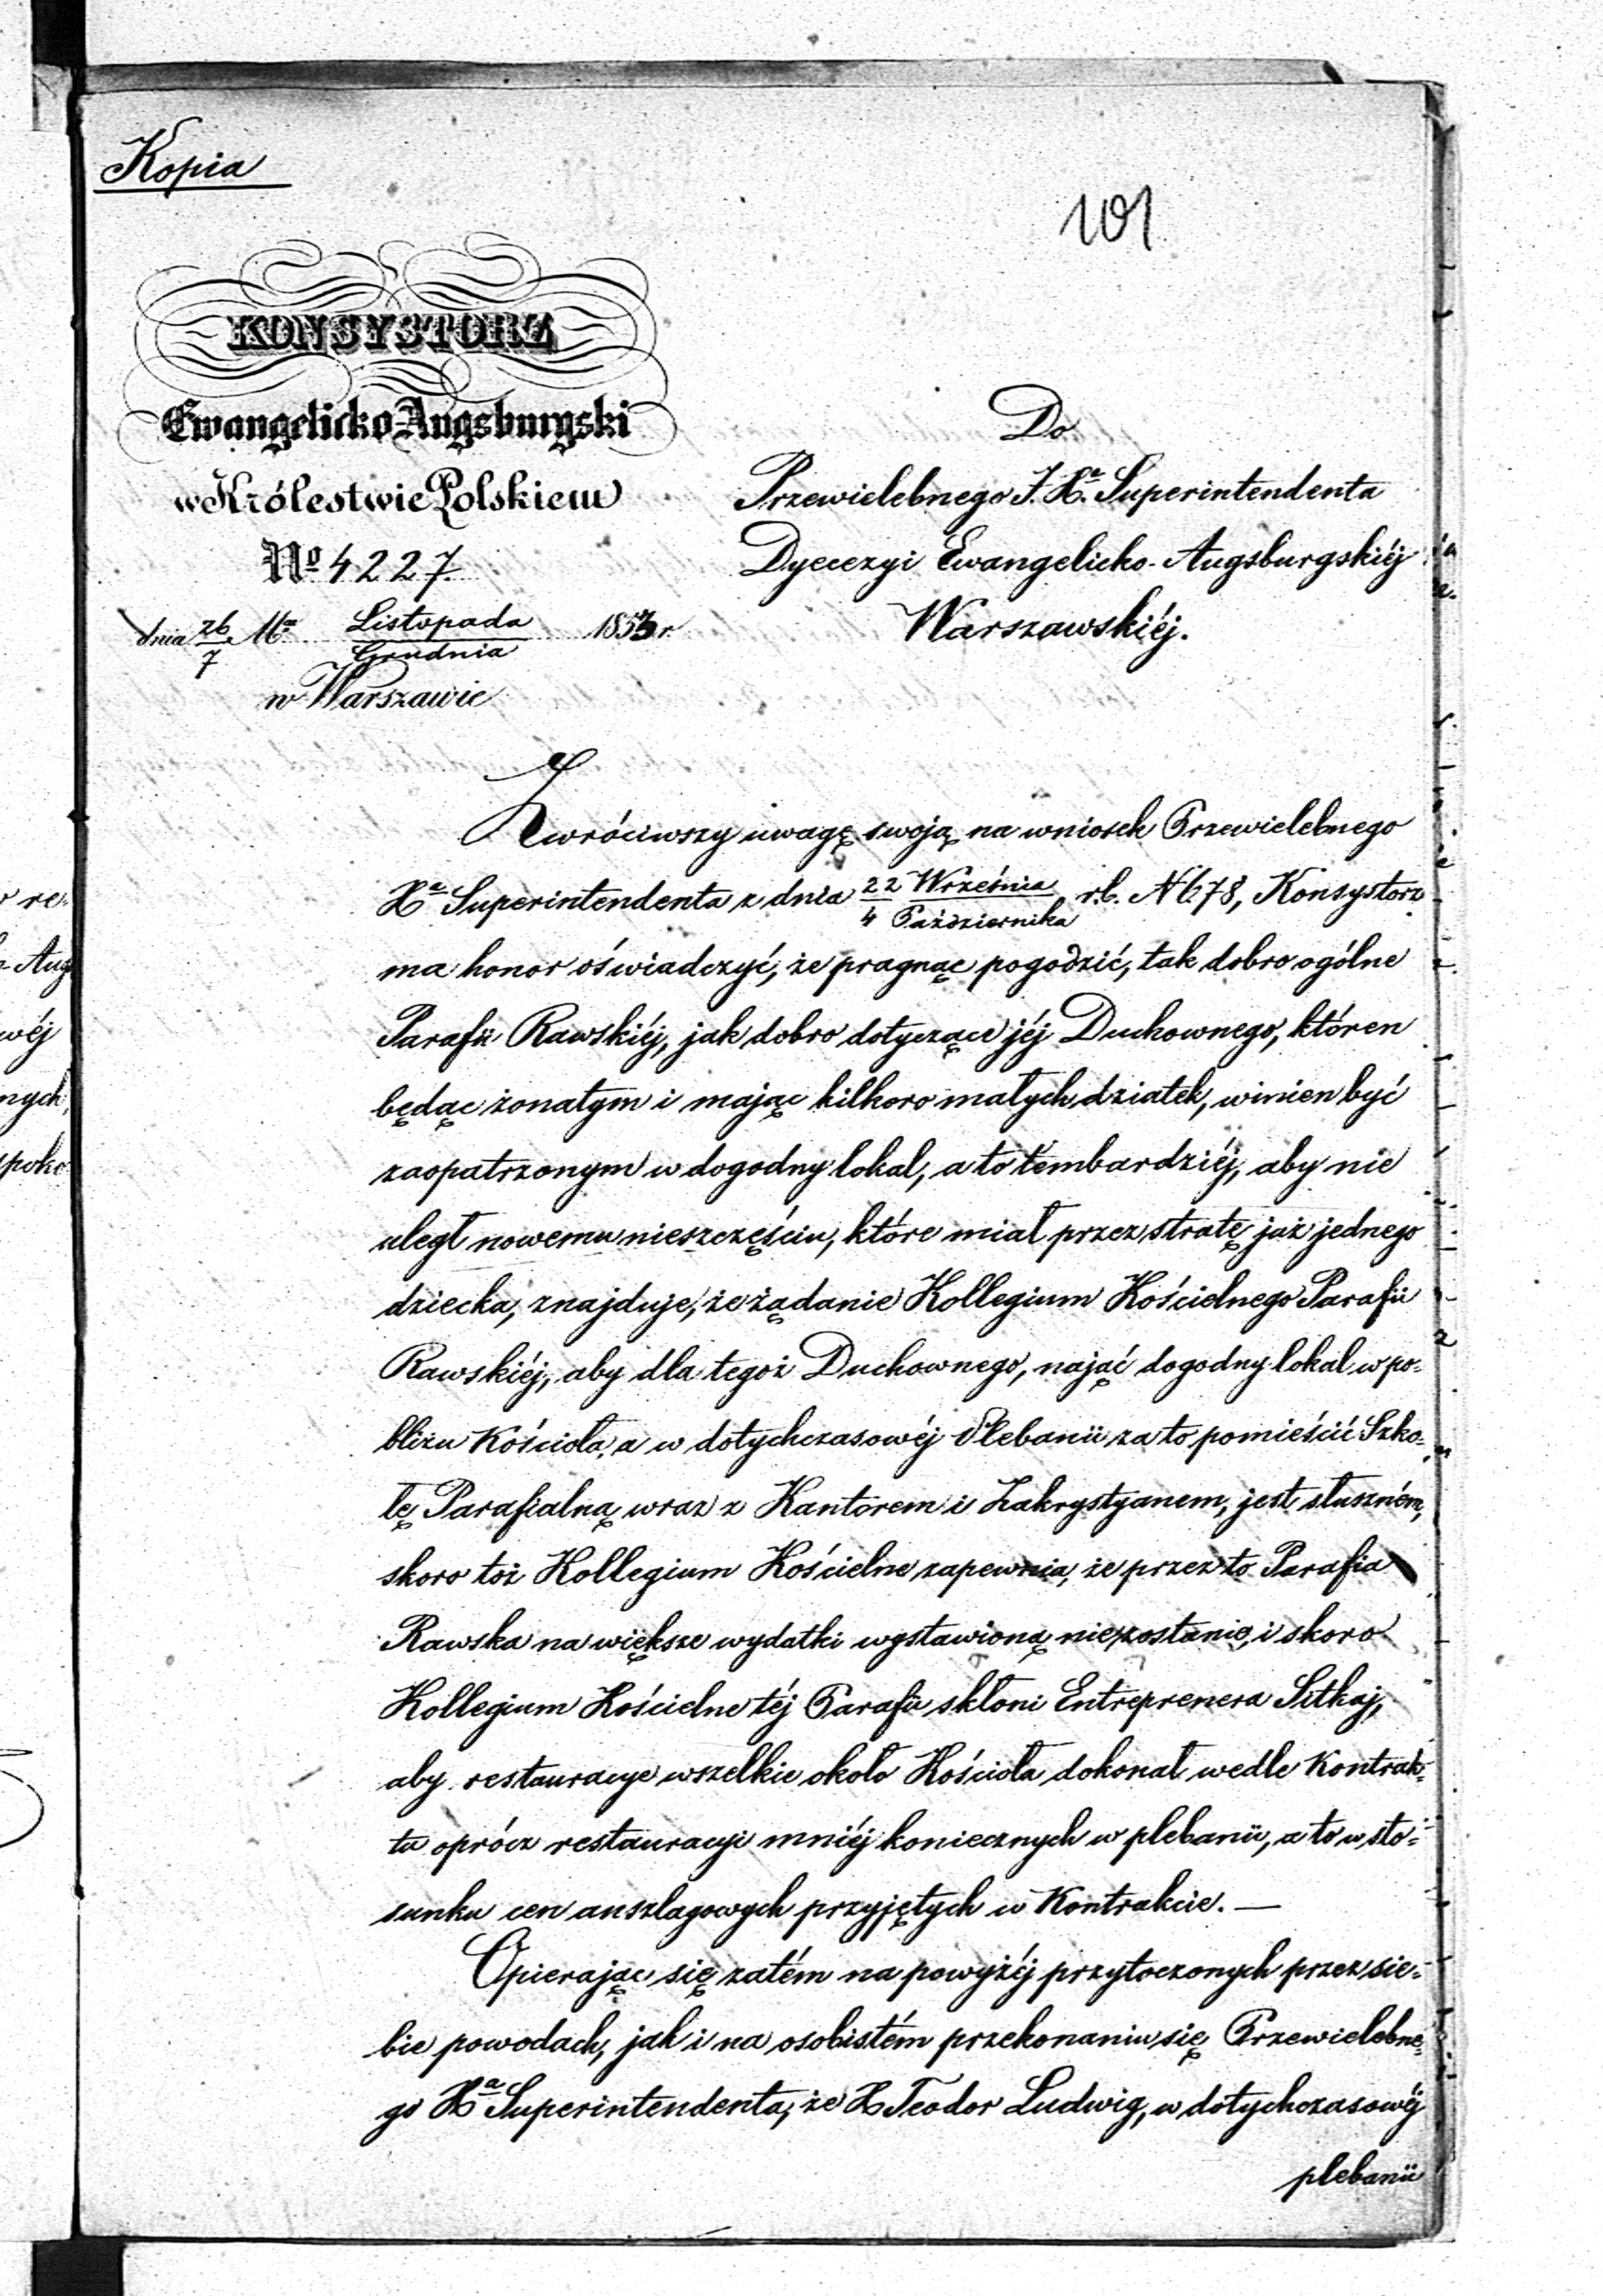 Kopia
101
KONSYSTORZ
Ewangelicko-Augsburgski
w Królestwie Polskiem
No 4227.
dnia 26/7 Mca Listopada/Grudnia 1853 r.
w Warszawie
Do
Przewielebnego J. Xa. Superintendenta
Dyecezyi Ewangelicko-Augsburgskiéj
Warszawskiéj.
Zwróciwszy uwagę swoją na wniosek Przewielebnego
Xa Superintendenta z dnia 22 Września/4 Października r.b. N 678, Konsystorz
ma honor oświadczyć, że pragnąc pogodzić, tak dobro ogólne
Parafii Rawskiéj, jak dobro dotyczące jéj Duchownego, któren
będąc żonatym i mając kilkoro małych dziatek, winien być
zaopatrzonym w dogodny lokal, a to témbardziéj, aby nie
uległ nowemu nieszczęściu, które miał przez stratę już jednego
dziecka, znajduje, że żądanie Kollegium Kościelnego Parafii
Rawskiéj, aby dla tegoż Duchownego, nająć dogodny lokal w po-
bliżu Kościoła, a w dotychczasowéj Plebanii za to pomieścić Szko-
łę Parafialną wraz z Kantorem i Zakrystyanem, jest słuszném,
skoro toż Kollegium Kościelne zapewnia, że przez to Parafia
Rawska na większe wydatki wystawioną niezostanie, i skoro
Kollegium Kościelne téj Parafii skłoni Entreprenera Sitkaj,
aby restauracye wszelkie około Kościoła dokonał wedle Kontrak-
tu oprócz restauracyi mniéj koniecznych w plebanii, a to w sto-
sunku cen anszlagowych przyjętych w Kontrakcie. —
Opierając się zatém na powyżéj przytoczonych przez sie-
bie powodach, jak i na osobistém przekonaniu się Przewielebne-
go Xa Superintendenta, że X Teodor Ludwig, w dotychczasowéj
plebanii